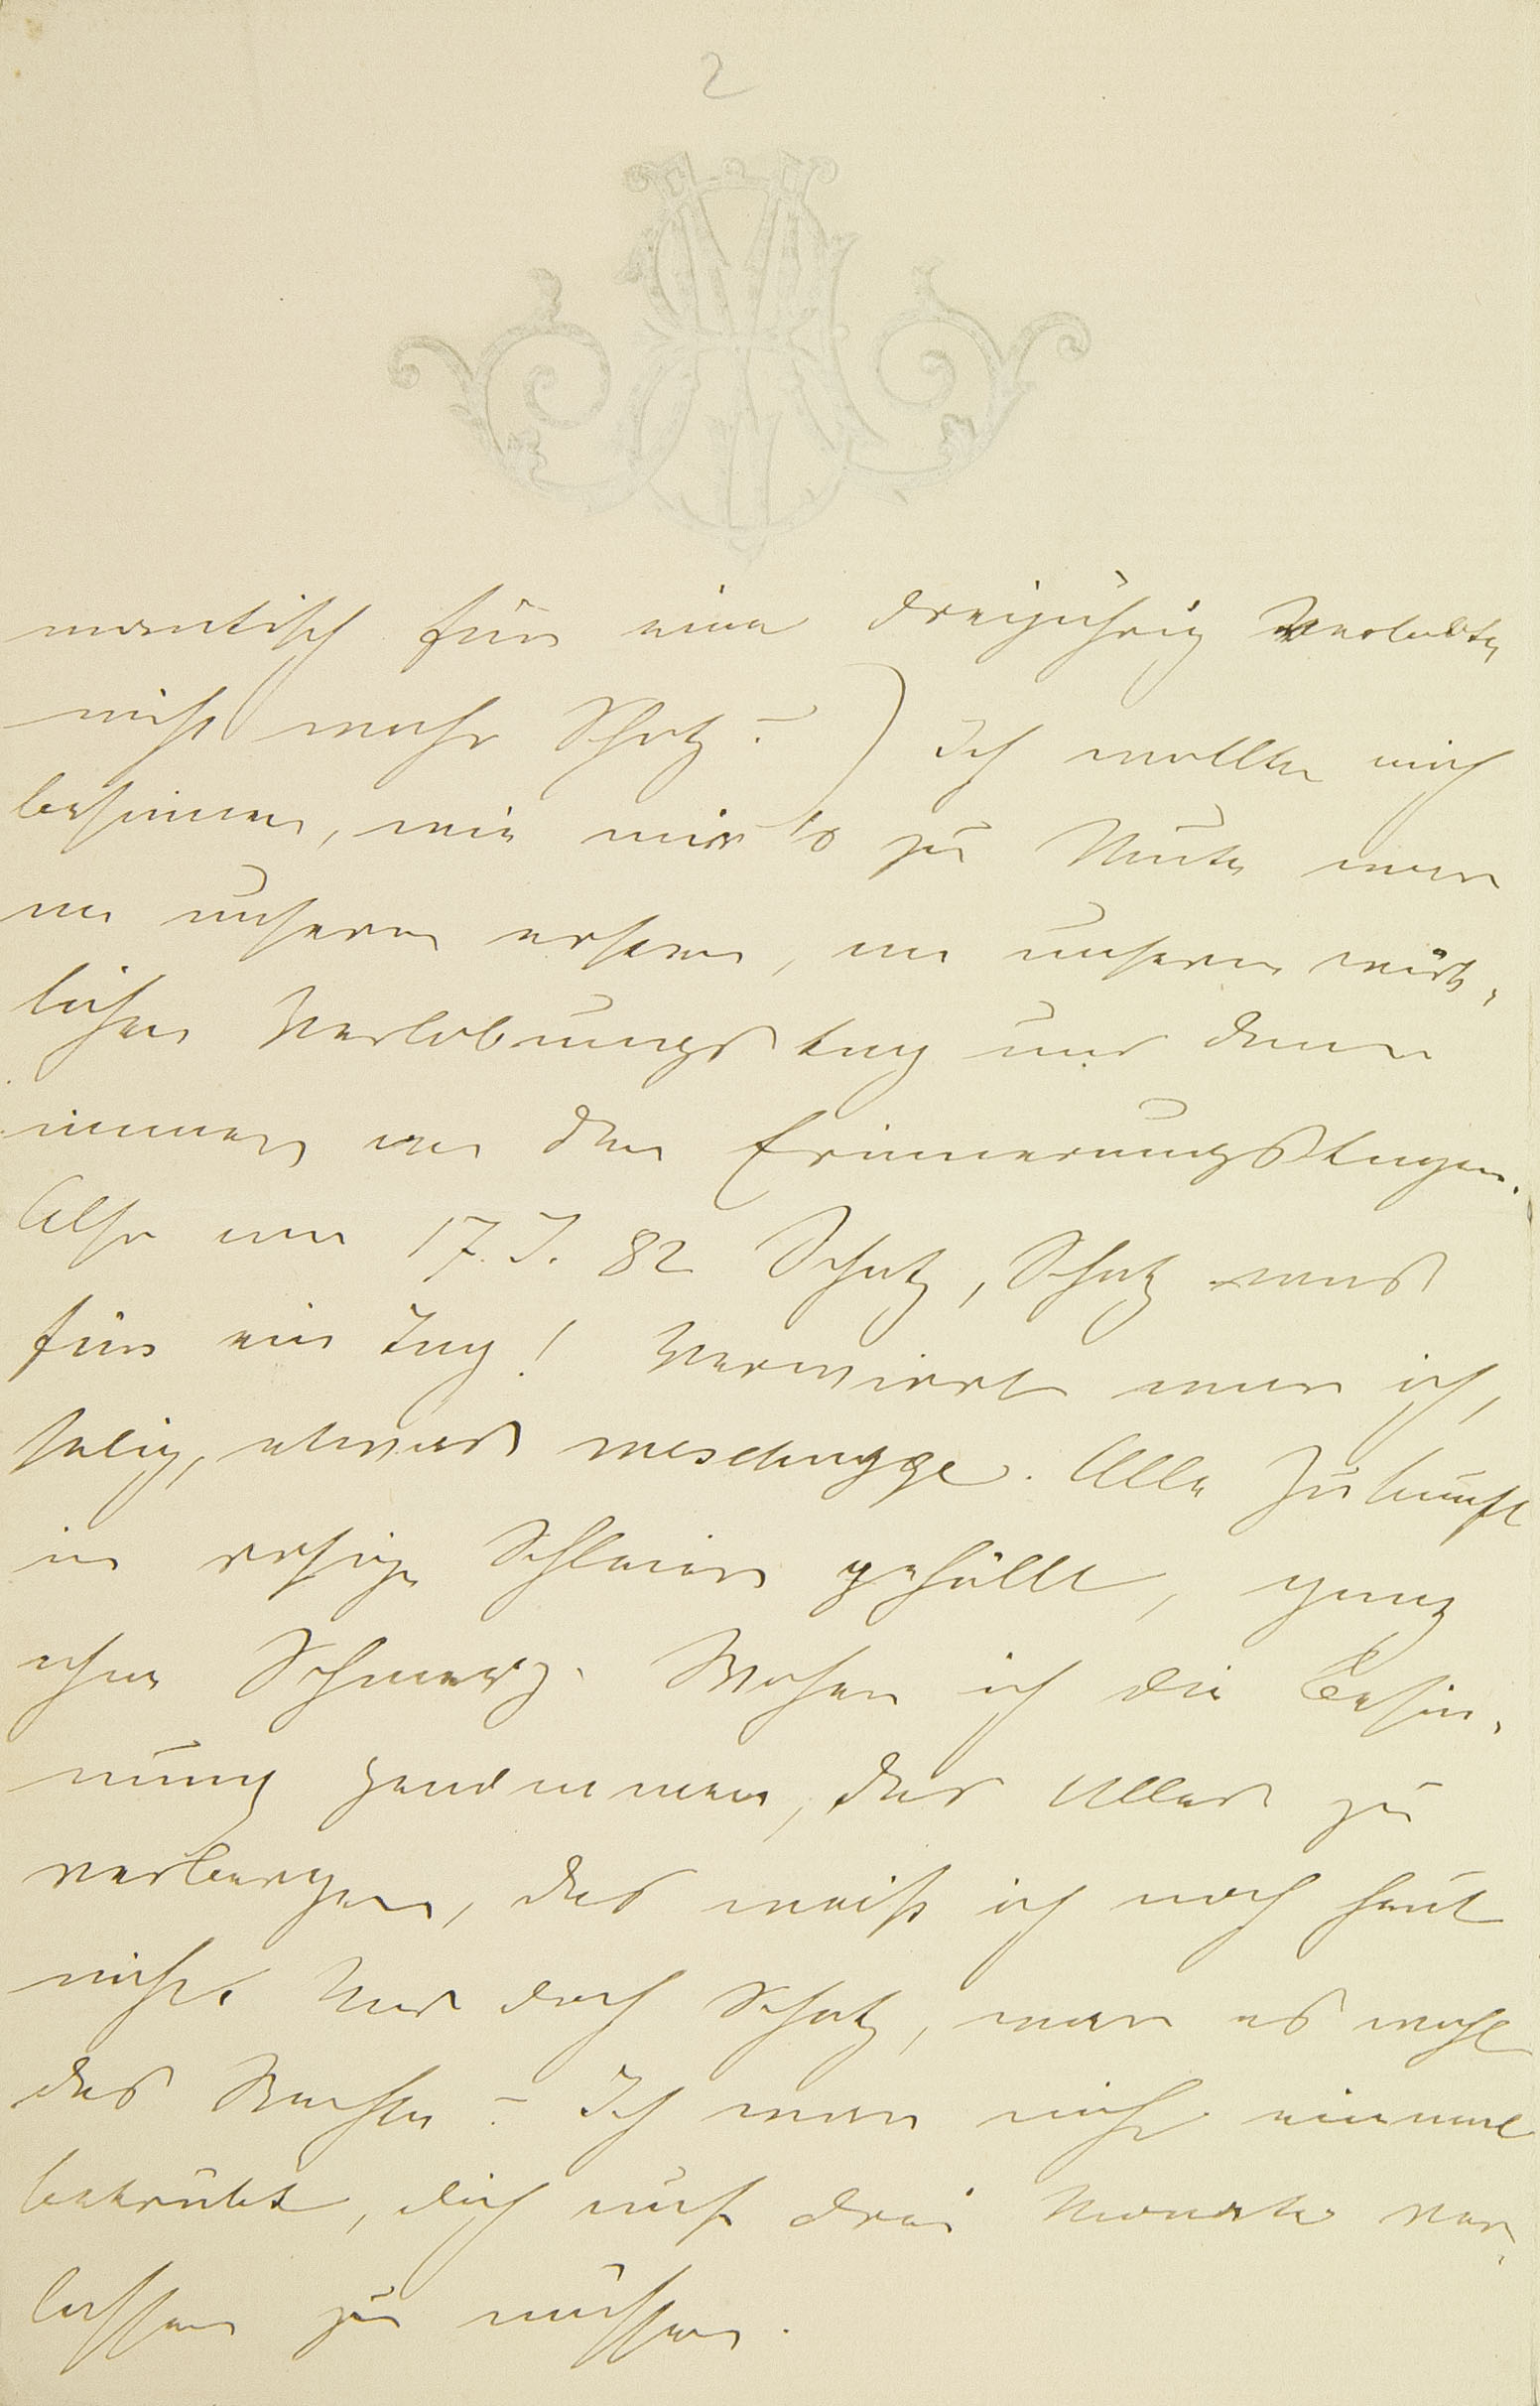 2
mantisch für eine dreijährig Verlobte,
nicht wahr Schatz? ) Ich wollte mich
besinnen, wie mir's zu Mute war
an unserm ersten, an unserm wirk-
lichen Verlobungstag und dann
immer an den Erinnerungstagen.
Also am 17. J. 82 Schatz, Schatz was
für ein Tag! Verwirrt war ich,
selig, etwas meschugge. Alle Zukunft
in rosige Schleier gehüllt, ganz
ohne Schmerz. Woher ich die Besin-
nung genommen, das Alles zu
verbergen, das weiß ich noch heut
nicht. Und doch Schatz, war es wohl
das Rechte? Ich war nicht einmal
betrübt, dich auf drei Monate ver-
lassen zu müssen.